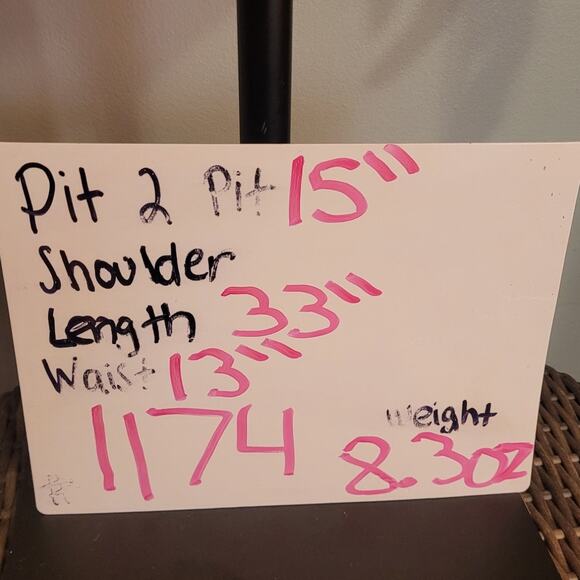 Pit 2 Pit 15"
Shoulder
Length 33"
Waist 13"
1174
weight
8.3oz